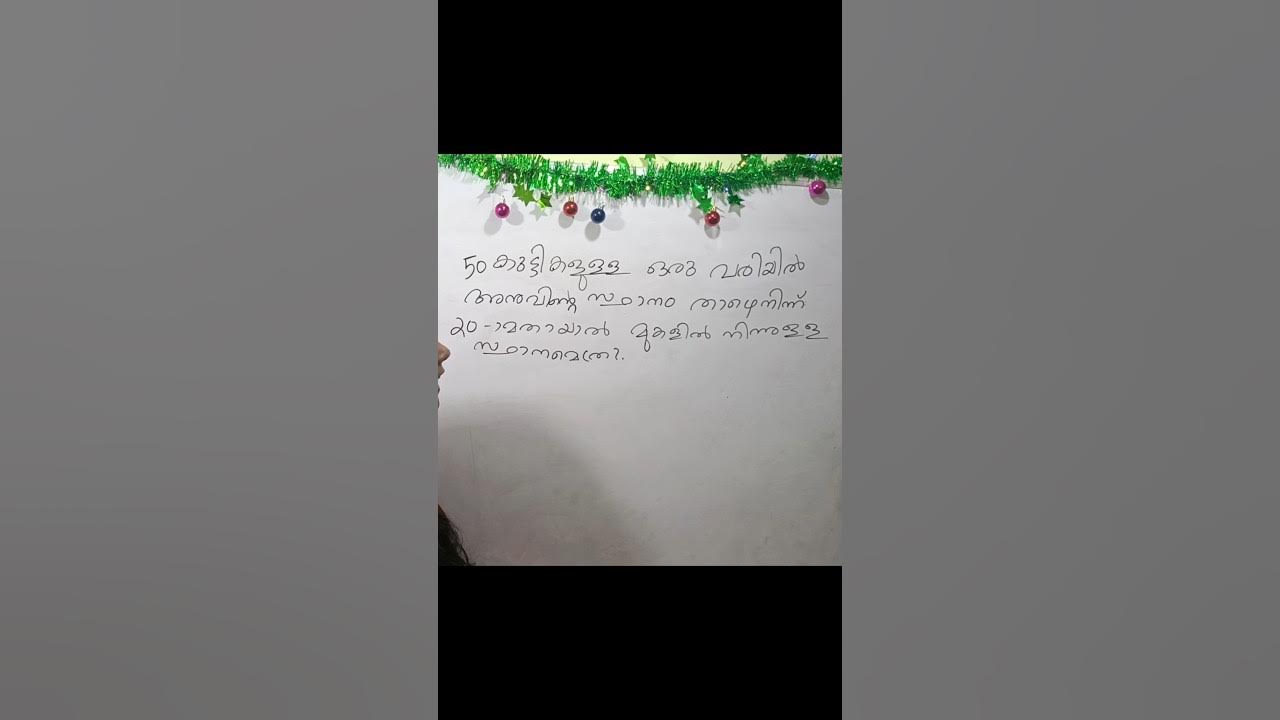 50 കുട്ടികളുള്ള ഒരു വരിയിൽ
അനുവിന്റെ സ്ഥാനം താഴെനിന്ന്
20-ാമതായാൽ മുകളിൽ നിന്നുള്ള
സ്ഥാനമെത്ര?.